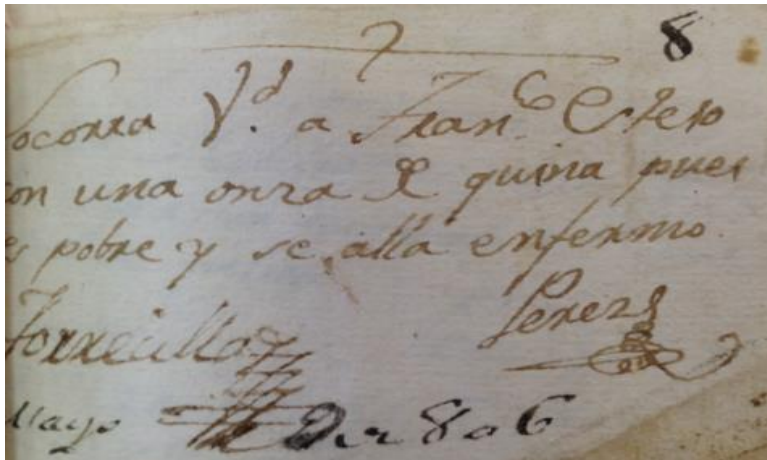 8
Socorra Vd. a Franco Otero
con una onza de quina pues
es pobre y se alla enfermo
Torrecilla Perez
Mayo 2 de 806